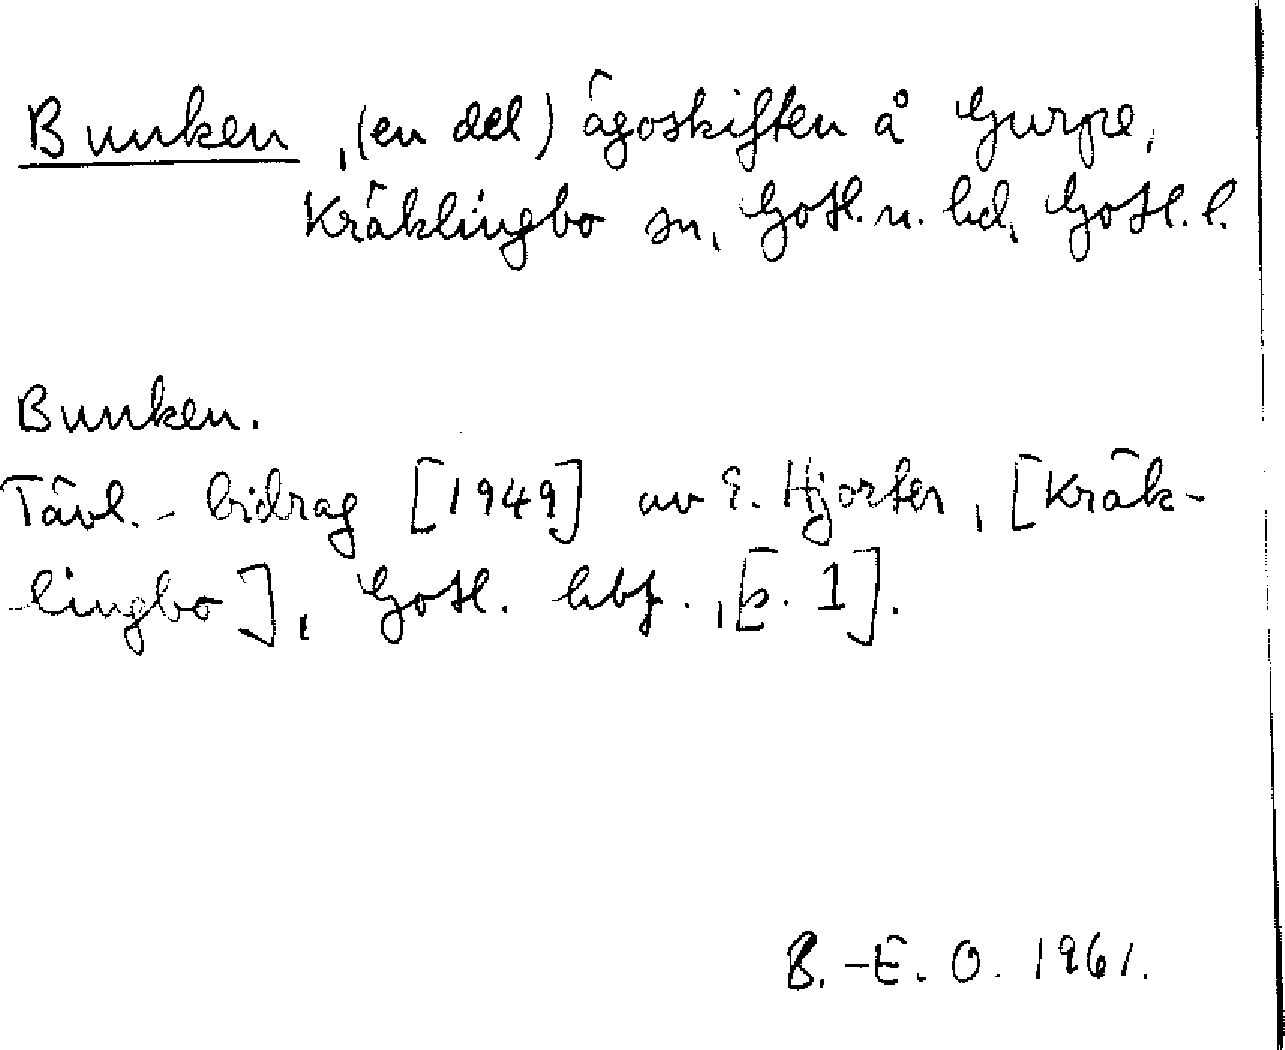 Bunken, (en del) ägoskiften å Gurpe,
Kräklingbo sn, Gotl. n. hd, Gotl. l.
Bunken.
Tävl.-bidrag [1949] av E. Hjorter, [Kräk-
lingbo], Gotl. hbf., [s. 1].
B.-E. O. 1961.